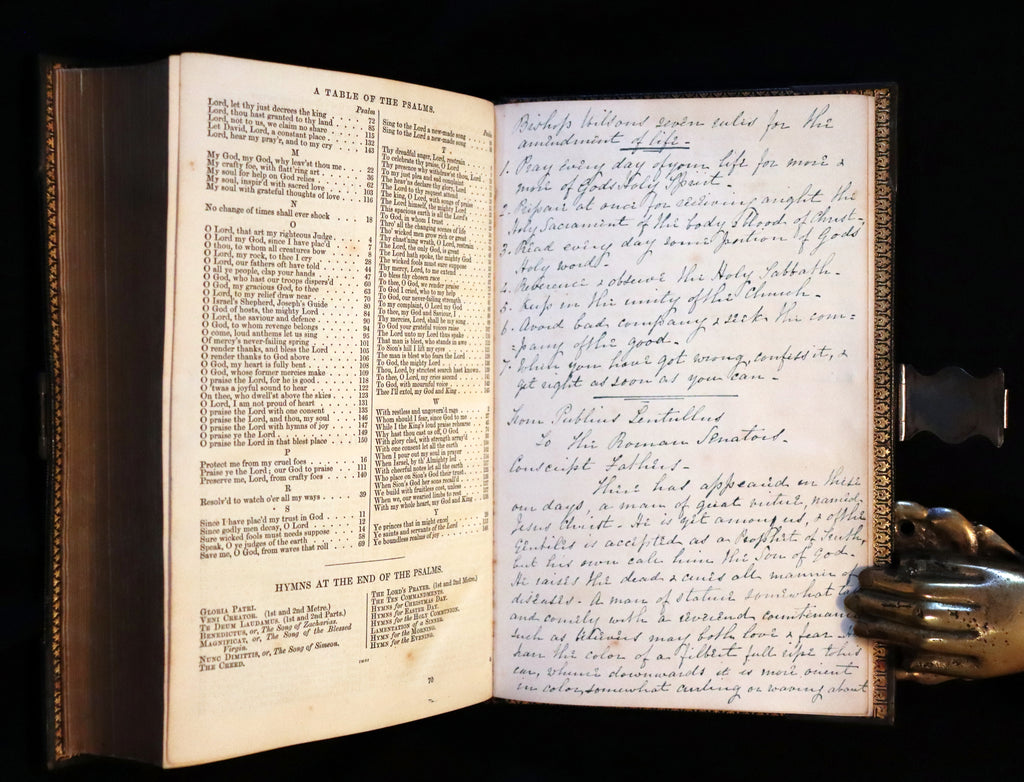 A TABLE OF THE PSALMS.
Psalm
Lord, let thy just decrees the king 72
Lord, thou hast granted to thy land 85
Lord, not to us, we claim no share 115
Let David, Lord, a constant place 132
Lord, hear my pray'r, and to my cry 143
M
My God, my God, why leav'st thou me 22
My crafty foe, with flatt'ring art 36
My soul for help on God relies 62
My soul, inspir'd with sacred love 103
My soul with grateful thoughts of love 116
N
No change of times shall ever shock 18
O
O Lord, that art my righteous Judge 4
O Lord my God, since I have plac'd 7
O thou, to whom all creatures bow 8
O Lord, my rock, to thee I cry 28
O Lord, our fathers oft have told 44
O all ye people, clap your hands 47
O God, who hast our troops dispers'd 60
O God, my gracious God, to thee 63
O Lord, to my relief draw near 70
O Israel's Shepherd, Joseph's Guide 80
O God of hosts, the mighty Lord 84
O Lord, the saviour and defence 90
O God, to whom revenge belongs 94
O come, loud anthems let us sing 95
Of mercy's never-failing spring 101
O render thanks, and bless the Lord 105
O render thanks to God above 106
O God, my heart is fully bent 108
O God, whose former mercies make 109
O praise the Lord, for he is good 118
O 'twas a joyful sound to hear 122
On thee, who dwell'st above the skies 123
O Lord, I am not proud of heart 131
O praise the Lord with one consent 135
O praise the Lord, and thou, my soul 146
O praise the Lord with hymns of joy 147
O praise ye the Lord 149
O praise the Lord in that blest place 150
P
Protect me from my cruel foes 16
Praise ye the Lord; our God to praise 111
Preserve me, Lord, from crafty foes 140
R
Resolv'd to watch o'er all my ways 39
S
Since I have plac'd my trust in God 11
Since godly men decay, O Lord 12
Sure wicked fools must needs suppose 14
Speak, O ye judges of the earth 58
Save me, O God, from waves that roll 69
Sing to the Lord a new-made song
Sing to the Lord a new-made song
T
Thy dreadful anger, Lord, restrain
To celebrate thy praise, O Lord
Thy presence why withdraw'st thou, Lord
To my just plea and sad complaint
The heav'ns declare thy glory, Lord
The Lord to thy request attend
The king, O Lord, with songs of praise
The Lord himself, the mighty Lord
This spacious earth is all the Lord's
To God, in whom I trust
Thro' all the changing scenes of life
Tho' wicked men grow rich or great
Thy chast'ning wrath, O Lord, restrain
The Lord, the only God, is great
The Lord hath spoke, the mighty God
The wicked fools must sure suppose
Thy mercy, Lord, to me extend
To bless thy chosen race
To thee, O God, we render praise
To God I cried, who to my help
To God, our never-failing strength
To my complaint, O Lord my God
To thee, my God and Saviour, I
Thy mercies, Lord, shall be my song
To God your grateful voices raise
The Lord unto my Lord thus spake
That man is blest, who stands in awe
To Sion's hill I lift my eyes
The man is blest who fears the Lord
To God, the mighty Lord
Thou, Lord, by strictest search hast known
To thee, O Lord, my cries ascend
To God, with mournful voice
Thee I'll extol, my God and King
W
With restless and ungovern'd rage
Whom should I fear, since God to me
While I the King's loud praise rehearse
Why hast thou cast us off, O God
With glory clad, with strength array'd
With one consent let all the earth
When I pour out my soul in prayer
When Israel, by th' Almighty led
With cheerful notes let all the earth
Who place on Sion's God their trust
When Sion's God her sons recall'd
We build with fruitless cost, unless
When we, our wearied limbs to rest
With my whole heart, my God and King
Y
Ye princes that in might excel
Ye saints and servants of the Lord
Ye boundless realms of joy
HYMNS AT THE END OF THE PSALMS.
GLORIA PATRI.
VENI CREATOR. (1st and 2nd Metre.)
TE DEUM LAUDAMUS. (1st and 2nd Parts.)
BENEDICTUS, or, The Song of Zacharias.
MAGNIFICAT, or, The Song of the Blessed
Virgin.
NUNC DIMITTIS, or, The Song of Simeon.
THE CREED.
THE LORD'S PRAYER. (1st and 2nd Metre.)
THE TEN COMMANDMENTS.
HYMNS for CHRISTMAS DAY.
HYMNS for EASTER DAY.
HYMNS for the HOLY COMMUNION.
LAMENTATION of a SINNER.
HYMN for the MORNING.
HYMN for the EVENING.
70
Bishop Wilsons seven rules for the
amendment of life -
1. Pray every day of your life for more &
more of Gods Holy Spirit -
2. Prepair at once for reciving aright the
Holy Sacrament of the body & blood of Christ -
3. Read every day some portion of Gods
Holy word -
4. Reverence & observe the Holy Sabbath -
5. Keep in the unity of the Church -
6. Avoid bad company & seek the com-
-pany of the good -
7. When you have got wrong, confess it, &
get right as soon as you can -
From Publius Lentullus
To the Roman Senators -
Conscript Fathers -
There has appeared in these
our days, a man of great virtue, named
Jesus Christ - He is yet among us, & of the
Gentiles is accepted as a Prophet of Truth,
but his own call him the Son of God -
He raises the dead & cures all manner of
diseases - A man of stature somewhat ta
and comely with a reverend countenance
such as believers may both love & fear - H
hair the color of a filbert full ripe to his
ear, whence downwards it is more orient
in color, somewhat curling or waving about